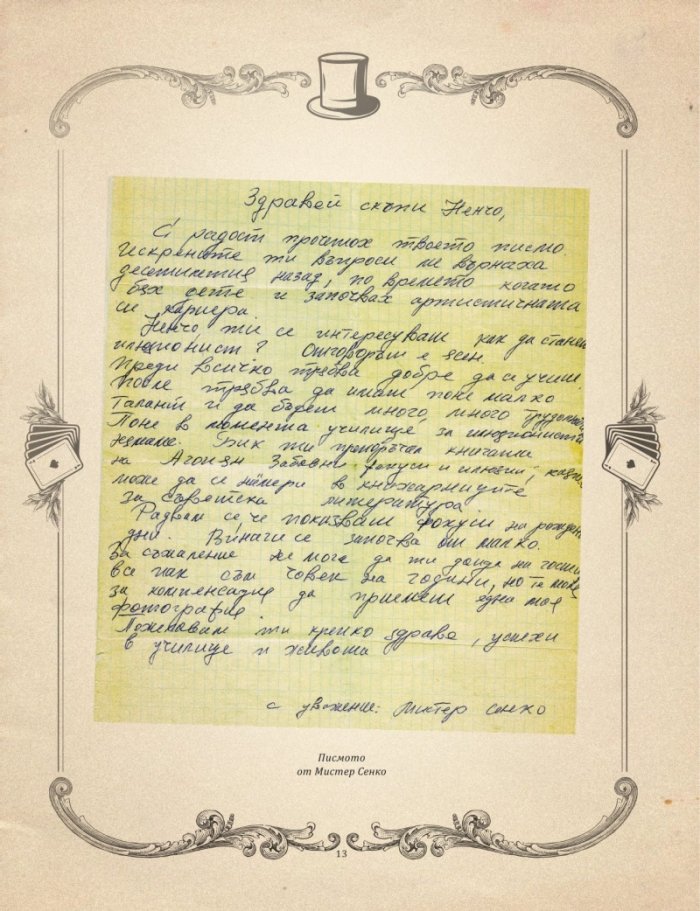 Здравей скъпи Ненчо,
С радост прочетох твоето писмо
Искрените ти въпроси ме върнаха
десетилетия назад, по времето когато
бях дете и започвах артистичната
си кариера.
Ненчо, ти се интересуваш как да станеш
илюзионист? Отговорът е ясен.
Преди всичко трябва добре да се учиш.
После трябва да имаш поне малко
талант и да бъдеш много, много
Поне в момента училище за илюзионисти
нямаме. Бих ти препоръчал книгата
на Агопян Забавни фокуси и илюзии,
може да се намери в книжарниците
за съветска литература.
Радвам се, че показваш фокуси на рожден
дни. Винаги се започва от малко.
За съжаление не мога да ти дойда на гости
все пак съм човек на години, но те моля
за компенсация да приемеш една моя
фотография.
Пожелавам ти крепко здраве, успехи
в училище и живота
с уважение: Мистер Сенко
Писмото
от Мистер Сенко
13